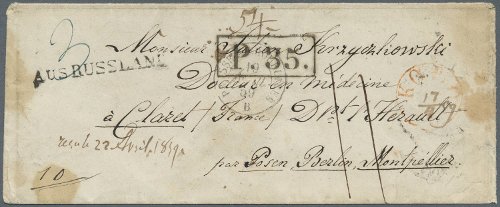 54
3
Monsieur Julien Skrzyczkowski
P. 35.
AUS RUSSLAND
Docteur en médecine
à Claret / France / Dpt / Hérault
reçu le 22 Avril 1859
par Posen, Berlin, Montpellier
10
17